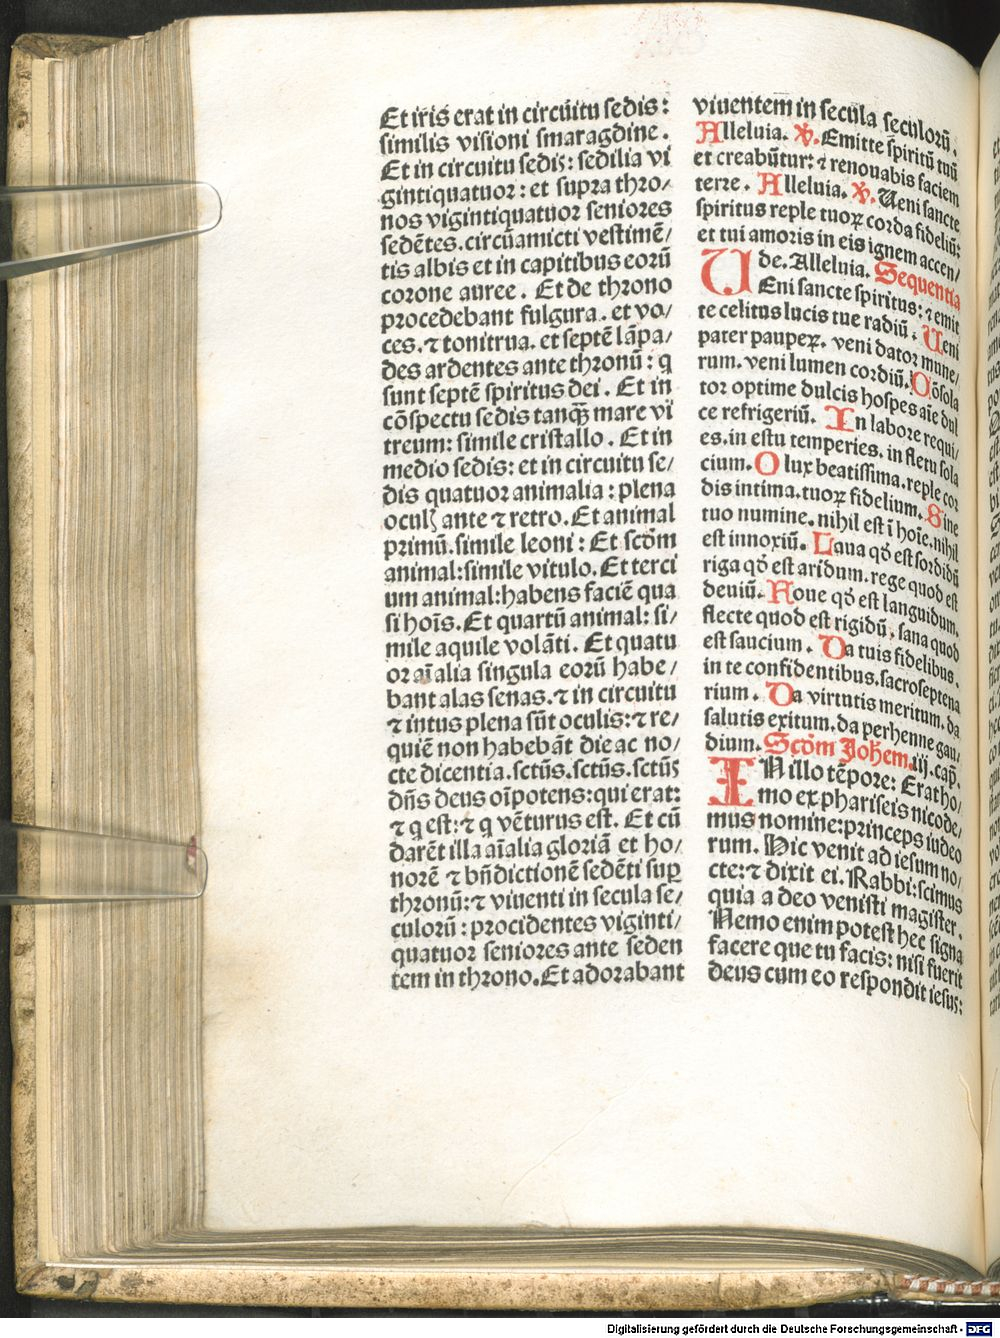 Et iris erat in circũitu sedis:
similis visioni smaragdine.
Et in circuitu sedis: sedilia vi
gintiquatuor: et supra thro/
nos vigintiquatuor seniores
sedētes. circũamicti vestimē/
tis albis et in capitibus eorũ
corone auree. Et de throno
procedebant fulgura. et vo/
ces. ⁊ tonitrua. et septē lãpa/
des ardentes ante thronũ: q
sunt septē spiritus dei. Et in
cõspectu sedis tanq̃ mare vi
treum: simile cristallo. Et in
medio sedis: et in circuitu se/
dis quatuor animalia: plena
oculꝭ ante ⁊ retro. Et animal
primũ. simile leoni: Et scd̃m
animal: simile vitulo. Et terci
um animal: habens faciē qua
si hoĩs. Et quartũ animal: si/
mile aquile volãti. Et quatu
or aĩalia singula eorũ habe/
bant alas senas. ⁊ in circuitu
⁊ intus plena sũt oculis: ⁊ re/
quiē non habebãt die ac no/
cte dicentia. sctũs. sctũs. sctũs
dñs deus oĩpotens: qui erat:
⁊ q est: ⁊ q vēturus est. Et cũ
darēt illa aĩalia gloriã et ho/
norē ⁊ bñdictionē sedēti suꝑ
thronũ: ⁊ viuenti in secula se/
culorũ: procidentes viginti/
quatuor seniores ante seden
tem in throno. Et adorabant
viuentem in secula seculorũ.
Alleluia. ℣. Emitte spiritũ tuũ
et creabũtur: ⁊ renouabis faciem
terre. Alleluia. ℣. Ueni sancte
spiritus reple tuoꝝ corda fideliũ:
et tui amoris in eis ignem accen/
de. Alleluia. Sequentia
UEni sancte spiritus: ⁊ emit
te celitus lucis tue radiũ. Ueni
pater paupeꝝ. veni dator mune/
rum. veni lumen cordiũ. Cõsola
tor optime dulcis hospes aĩe dul
ce refrigeriũ. In labore requi/
es. in estu temperies. in fletu sola
cium. O lux beatissima. reple cor
dis intima. tuoꝝ fidelium. Sine
tuo numine. nihil est ĩ hoĩe. nihil
est innoxiũ. Laua qd̃ est sordidũ
riga qd̃ est aridum. rege quod est
deuiũ. Foue qd̃ est languidum.
flecte quod est rigidũ. sana quod
est saucium. Da tuis fidelibus.
in te confidentibus. sacro septena
rium. Da virtutis meritum. da
salutis exitum. da perhenne gau/
dium. Scd̃m Johem. iij. cap̃.
IN illo tēpore: Erat ho/
mo ex phariseis nicode/
mus nomine: princeps iudeo
rum. Hic venit ad iesum no/
cte: ⁊ dixit ei. Rabbi: scimus
quia a deo venisti magister.
Nemo enim potest hec signa
facere que tu facis: nisi fuerit
deus cum eo respondit iesus:
Digitalisierung gefördert durch die Deutsche Forschungsgemeinschaft - DFG